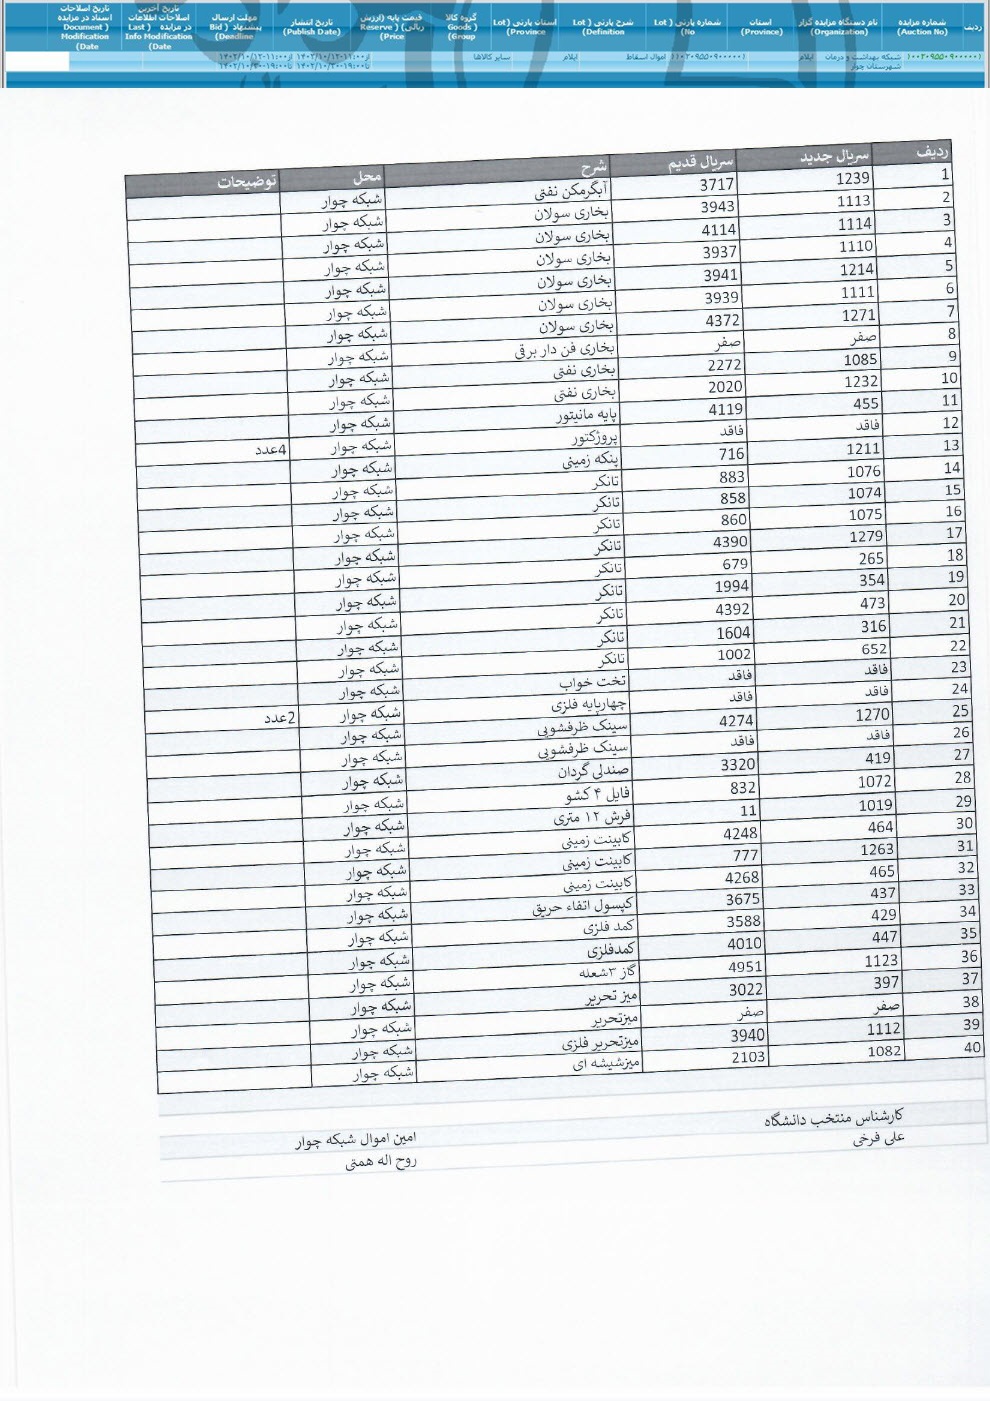 ردیف
شماره مزایده (Auction No)
نام دستگاه مزایده گزار (Organization)
استان (Province)
شماره پارتی ( Lot No)
شرح پارتی ( Lot Definition)
استان پارتی ( Lot Province)
گروه کالا ( Goods Group)
قیمت پایه (ارزش ریالی) ( Reserve Price)
تاریخ انتشار (Publish Date)
مهلت ارسال پیشنهاد ( Bid Deadline)
تاریخ آخرین اصلاحات اطلاعات در مزایده ( Last Info Modification Date)
تاریخ اصلاحات اسناد در مزایده ( Document Modification Date)
شبکه بهداشت و درمان شهرستان چوار ایلام اموال اسقاط ایلام سایر کالاها
ردیف سریال جدید سریال قدیم شرح محل توضیحات
1 1239 3717 آبگرمکن نفتی شبکه چوار
2 1113 3943 بخاری سولان شبکه چوار
3 1114 4114 بخاری سولان شبکه چوار
4 1110 3937 بخاری سولان شبکه چوار
5 1214 3941 بخاری سولان شبکه چوار
6 1111 3939 بخاری سولان شبکه چوار
7 1271 4372 بخاری سولان شبکه چوار
8 صفر صفر بخاری فن دار برقی شبکه چوار
9 1085 2272 بخاری نفتی شبکه چوار
10 1232 2020 بخاری نفتی شبکه چوار
11 455 4119 پایه مانیتور شبکه چوار
12 فاقد فاقد پروژکتور شبکه چوار 4عدد
13 1211 716 پنکه زمینی شبکه چوار
14 1076 883 تانکر شبکه چوار
15 1074 858 تانکر شبکه چوار
16 1075 860 تانکر شبکه چوار
17 1279 4390 تانکر شبکه چوار
18 265 679 تانکر شبکه چوار
19 354 1994 تانکر شبکه چوار
20 473 4392 تانکر شبکه چوار
21 316 1604 تانکر شبکه چوار
22 652 1002 تانکر شبکه چوار
23 فاقد فاقد تخت خواب شبکه چوار
24 فاقد فاقد چهارپایه فلزی شبکه چوار 2عدد
25 1270 4274 سینک ظرفشویی شبکه چوار
26 فاقد فاقد سینک ظرفشویی شبکه چوار
27 419 3320 صندلی گردان شبکه چوار
28 1072 832 فایل ۴ کشو شبکه چوار
29 1019 11 فرش ۱۲ متری شبکه چوار
30 464 4248 کابینت زمینی شبکه چوار
31 1263 777 کابینت زمینی شبکه چوار
32 465 4268 کابینت زمینی شبکه چوار
33 437 3675 کپسول اتفاء حریق شبکه چوار
34 429 3588 کمد فلزی شبکه چوار
35 447 4010 کمدفلزی شبکه چوار
36 1123 4951 گاز ۳شعله شبکه چوار
37 397 3022 میز تحریر شبکه چوار
38 صفر صفر میزتحریر شبکه چوار
39 1112 3940 میزتحریر فلزی شبکه چوار
40 1082 2103 میزشیشه ای شبکه چوار
کارشناس منتخب دانشگاه
علی فرخی
امین اموال شبکه چوار
روح اله همتی